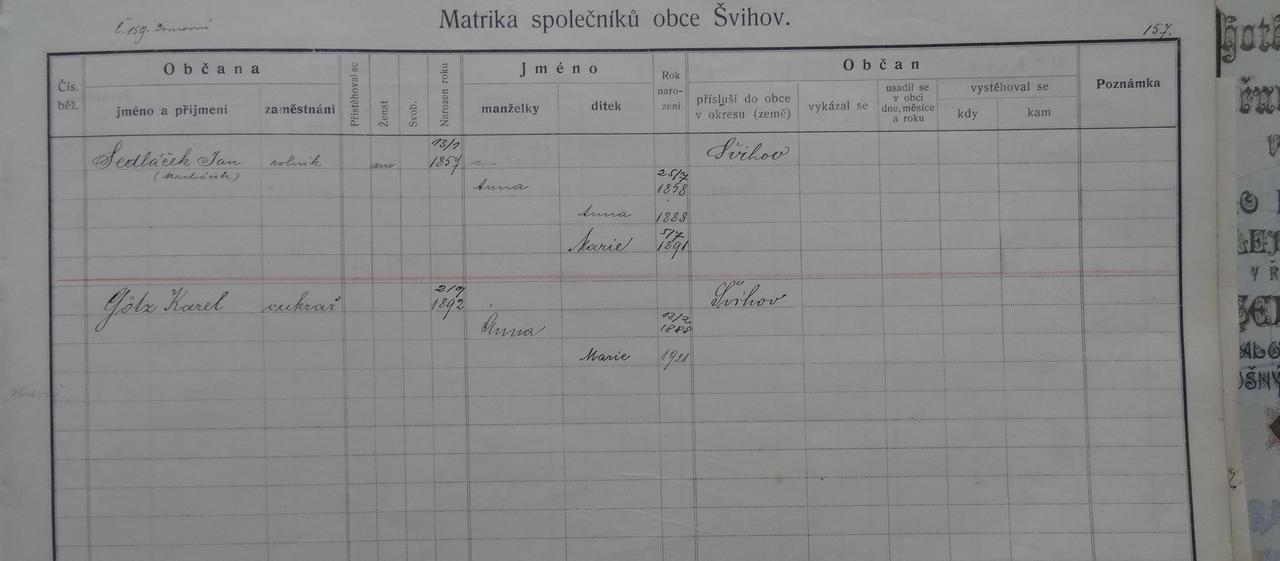 č. 159. Domovní
Matrika společníků obce Švihov.
157.
Čís. běž.
Občana
jméno a příjmení
zaměstnání
Přistěhoval se
Ženat
Svob.
Narozen roku
Jméno
manželky
dítek
Rok naro- zení
Občan
přísluší do obce v okresu (země)
vykázal se
usadil se v obci dne, měsíce a roku
vystěhoval se
kdy
kam
Poznámka
Sedláček Jan rolník ano 13/1 1857 Švihov
(Macháček)
Anna 25/7 1858
Anna 1888
Marie 5/7 1891
Götz Karel cukrář 2/9 1892 Švihov
Anna 12/2 1888
Marie 1921